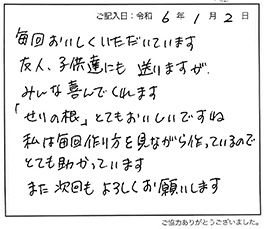 ご記入日：令和 6年 1月 2日
毎回おいしくいただいています
友人、子供達にも 送りますが、
みんな喜んでくれます
「せりの根」とてもおいしいですね
私は毎回作り方を見ながら作っているので
とても助かっています
また次回も よろしくお願いします
ご協力ありがとうございました。